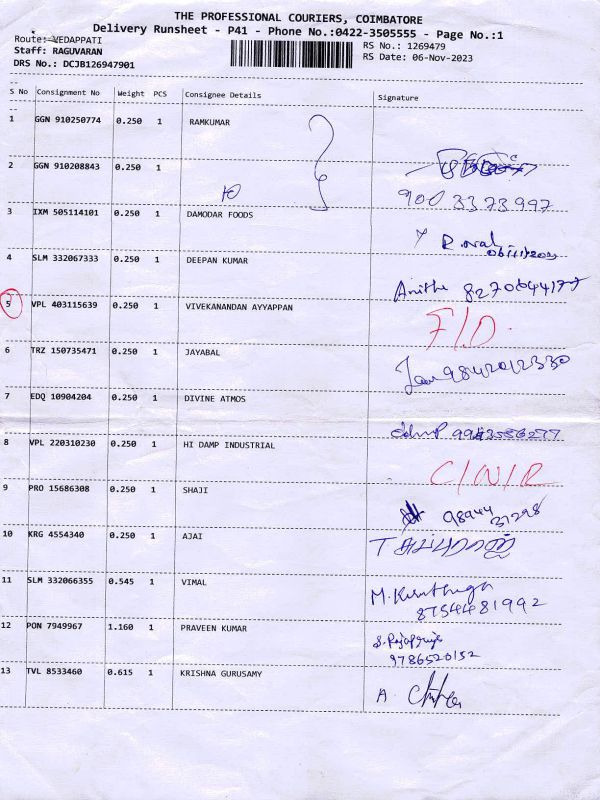 THE PROFESSIONAL COURIERS, COIMBATORE
Delivery Runsheet - P41 - Phone No.:0422-3505555 - Page No.:1
Route:-VEDAPPATI
Staff: RAGUVARAN
DRS No.: DCJB126947901
RS No.: 1269479
RS Date: 06-Nov-2023
S No Consignment No Weight PCS Consignee Details Signature
1 GGN 910250774 0.250 1 RAMKUMAR
2 GGN 910208843 0.250 1
900 3373997
3 IXM 505114101 0.250 1 DAMODAR FOODS
4 SLM 332067333 0.250 1 DEEPAN KUMAR
Anitha 8270644177
5 VPL 403115639 0.250 1 VIVEKANANDAN AYYAPPAN F/D.
6 TRZ 150735471 0.250 1 JAYABAL
9842012330
7 EDQ 10904204 0.250 1 DIVINE ATMOS
8 VPL 220310230 0.250 1 HI DAMP INDUSTRIAL C/N/R
9 PRO 15686308 0.250 1 SHAJI
98944
31298
10 KRG 4554340 0.250 1 AJAI
11 SLM 332066355 0.545 1 VIMAL
8754481992
12 PON 7949967 1.160 1 PRAVEEN KUMAR
9786520152
13 TVL 8533460 0.615 1 KRISHNA GURUSAMY
A